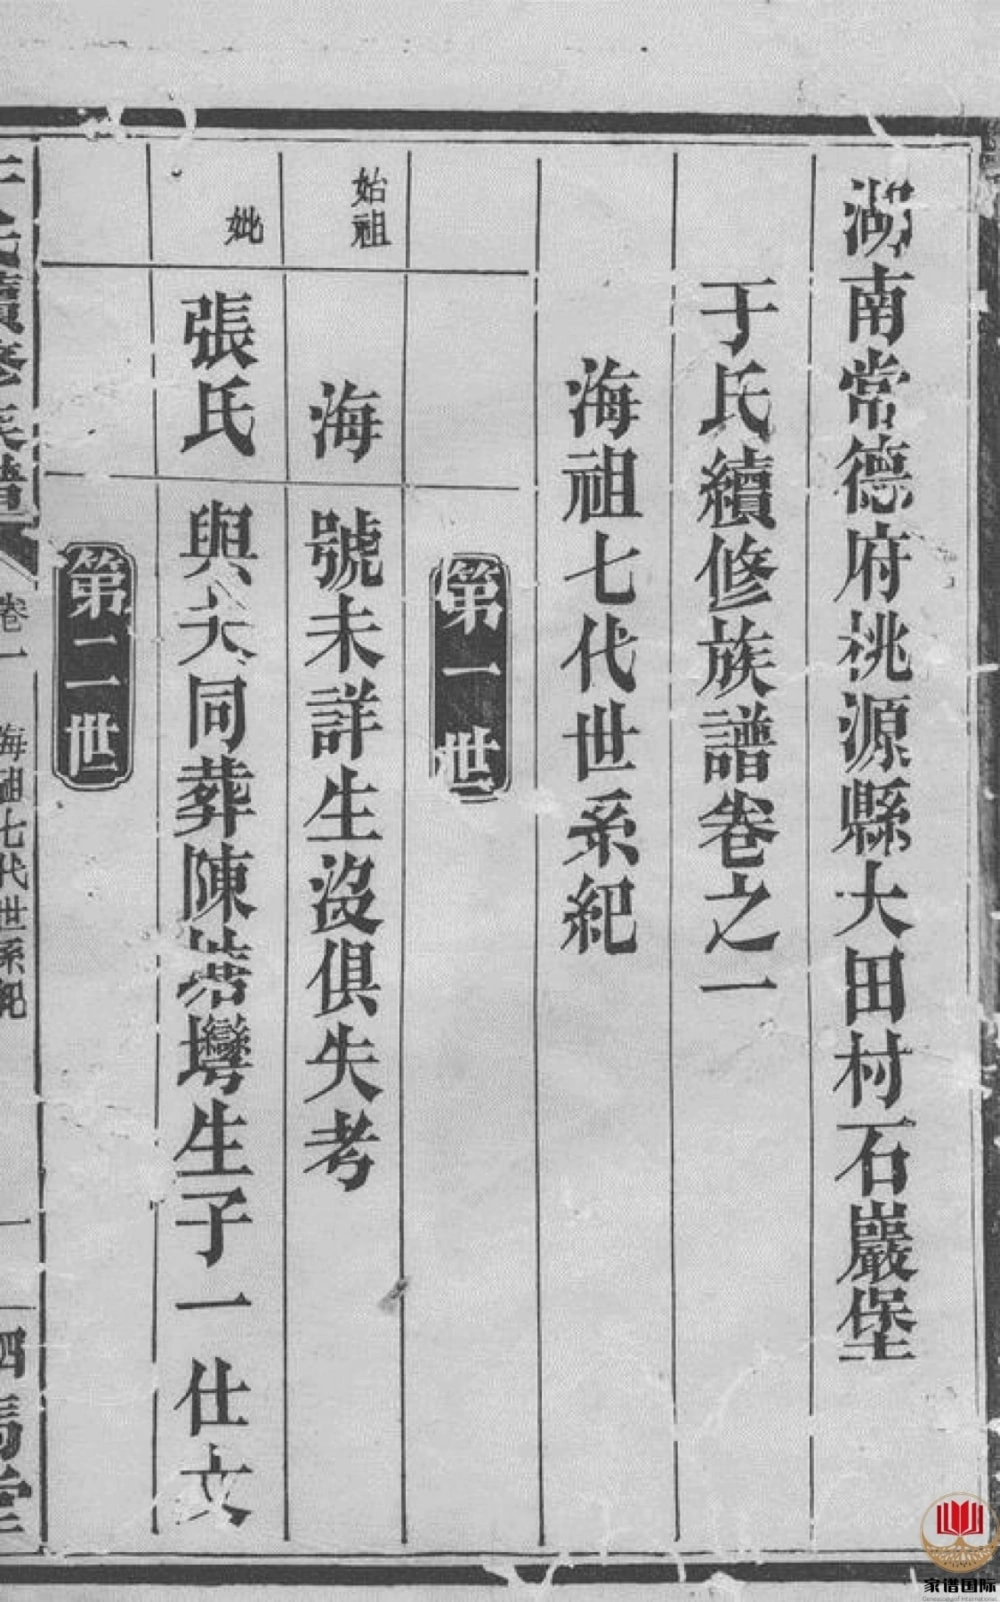 湖南常德府桃源縣大田村石巖堡
于氏續修族譜卷之一
海祖七代世系紀
第一世
始祖
海
號未詳生沒俱失考
妣
張氏
與夫同葬陳塔壪生子一仕文
第二世
于氏續修族譜
卷一
海祖七代世系紀
一
駟馬堂
家谱国际
Genealogy of International